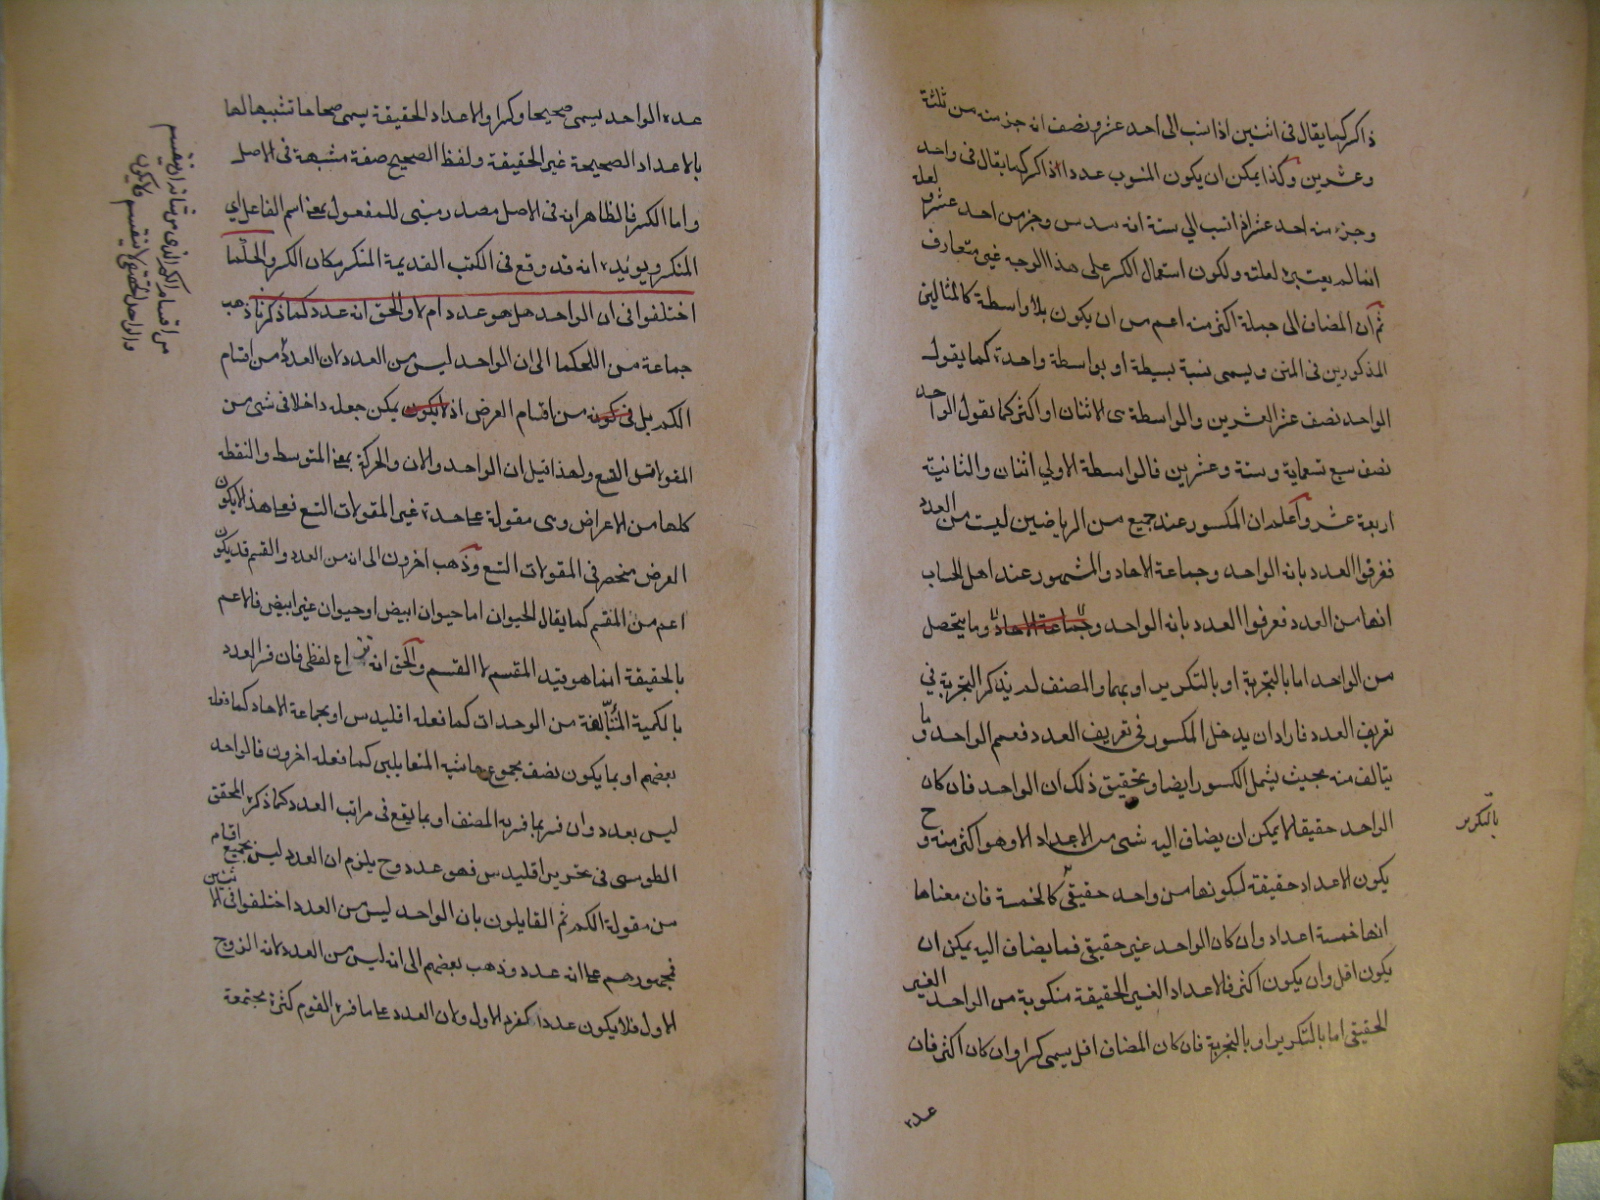 ذاكر كما يقال في اثنين اذا نسب الى احد عشر ونصف انه جزء منه من ثلثة
وعشرين وكذا يمكن ان يكون المنسوب عددا اذا كر كما يقال في واحد
وجزء منه احد عشر اذا نسب الي ستة انه سدس وجزء من احد عشر و لعله
انما لم يعتبره لعلته ولكون استعمال الكسر على هذا الوجه غير متعارف
ثم ان المضاف الى جملة اكثر منه اعم من ان يكون بلا واسطة كالمثالين
المذكورين في المتن ويسمى نسبة بسيطة او بواسطة واحدة كما يقول
الواحد نصف عشر العشرين والواسطة هى الاثنان او اكثر كما نقول الواحد
نصف سبع تسعماية وستة وعشرين فالواسطة الاولي اثنان والثانية
اربعة عشر واعلم ان الكسور عند جميع من الرياضيين ليست من العدد
فعرفوا العدد بانه الواحد وجماعة الاحاد والمشهور عند اهل الحساب
انها من العدد فعرفوا العدد بانه الواحد وجماعة الاحاد وما يتحصل
من الواحد اما بالتجزية او بالتكرير او بهما والمصنف لم يذكر التجزية في
تعريف العدد فاراد ان يدخل الكسور في تعريف العدد فعمم الواحد وما
يتالف منه بحيث يشمل الكسور ايضا وتحقيق ذلك ان الواحد فان كان
الواحد حقيقا لا يمكن ان يضاف اليه شى من الاعداد الا وهو اكثر منه وح
يكون الاعداد حقيقة لكونها من واحد حقيقي كالخمسة فان معناها
انها خمسة اعداد وان كان الواحد غير حقيقي فما يضاف اليه يمكن ان
يكون اقل وان يكون اكثر فالاعداد الغير الحقيقة منكوبة من الواحد الغير
الحقيقي اما بالتكرير او بالتجزية فان كان المضاف اقل يسمى كسرا وان كان اكثر فان
عده
بالتكرير
عده الواحد يسمى صحيحا وكسرا والاعداد الحقيقة يسمى صحاحا تشبيها لها
بالاعداد الصحيحة غير الحقيقة ولفظ الصحيح صفة مشبهة في الاصل
واما الكسر فالظاهر انه في الاصل مصدر مبنى للمفعول بمعنى اسم الفاعل اي
المنكسر ويويده انه قد وقع في الكتب القديمة المنكسر مكان الكسر والحكما
اختلفوا في ان الواحد هل هو عدد ام لا والحق انه عدد كما ذكرنا ذهب
جماعة من الحكما الى ان الواحد ليس من العدد لان العدد من اقسام
الكم بل في كونه من اقسام العرض اذ لا يكون يمكن جعله داخلا في شى من
المقولات التسع ولهذا قيل ان الواحد والان والحركة بمعنى المتوسط والنقطه
كلها من الاعراض وهى مقولة على حدة غير المقولات التسع فعلى هذا لا يكون
العرض منحصر في المقولات التسع وذهب اخرون الى انه من العدد والقسم قد يكون
اعم من المقسم كما يقال الحيوان اما حيوان ابيض او حيوان غير ابيض فالاعم
بالحقيقة انما هو قيد المقسم لا القسم والحق انه نزاع لفظي فان فسر العدد
بالكمية المتألفة من الوحدات كما فعله اقليدس او بجماعة الاحاد كما فعله
بعضهم او بما يكون نصف مجموع حاشيه المتقابلين كما فعله اخرون فالواحد
ليس بعدد وان فسر بما فسر به المصنف او بما يقع في مراتب العدد كما ذكره المحقق
الطوسى في تحرير اقليدس فهو عدد وح يلزم ان العدد ليس بجميع اقسام
من مقولة الكم ثم القايلون بان الواحد ليس من العدد اختلفوا في الاثنين
فجمهورهم على انه عدد وذهب بعضهم الى انه ليس من العدد لانه الزوج
الاول فلا يكون عددا كفرد الاول ولان العدد على ما فسره القوم كثرة مجتمعة
من اقسام الكم الذى من شانه ان ينقسم
والواحد الحقيقى لا ينقسم فلا يكون